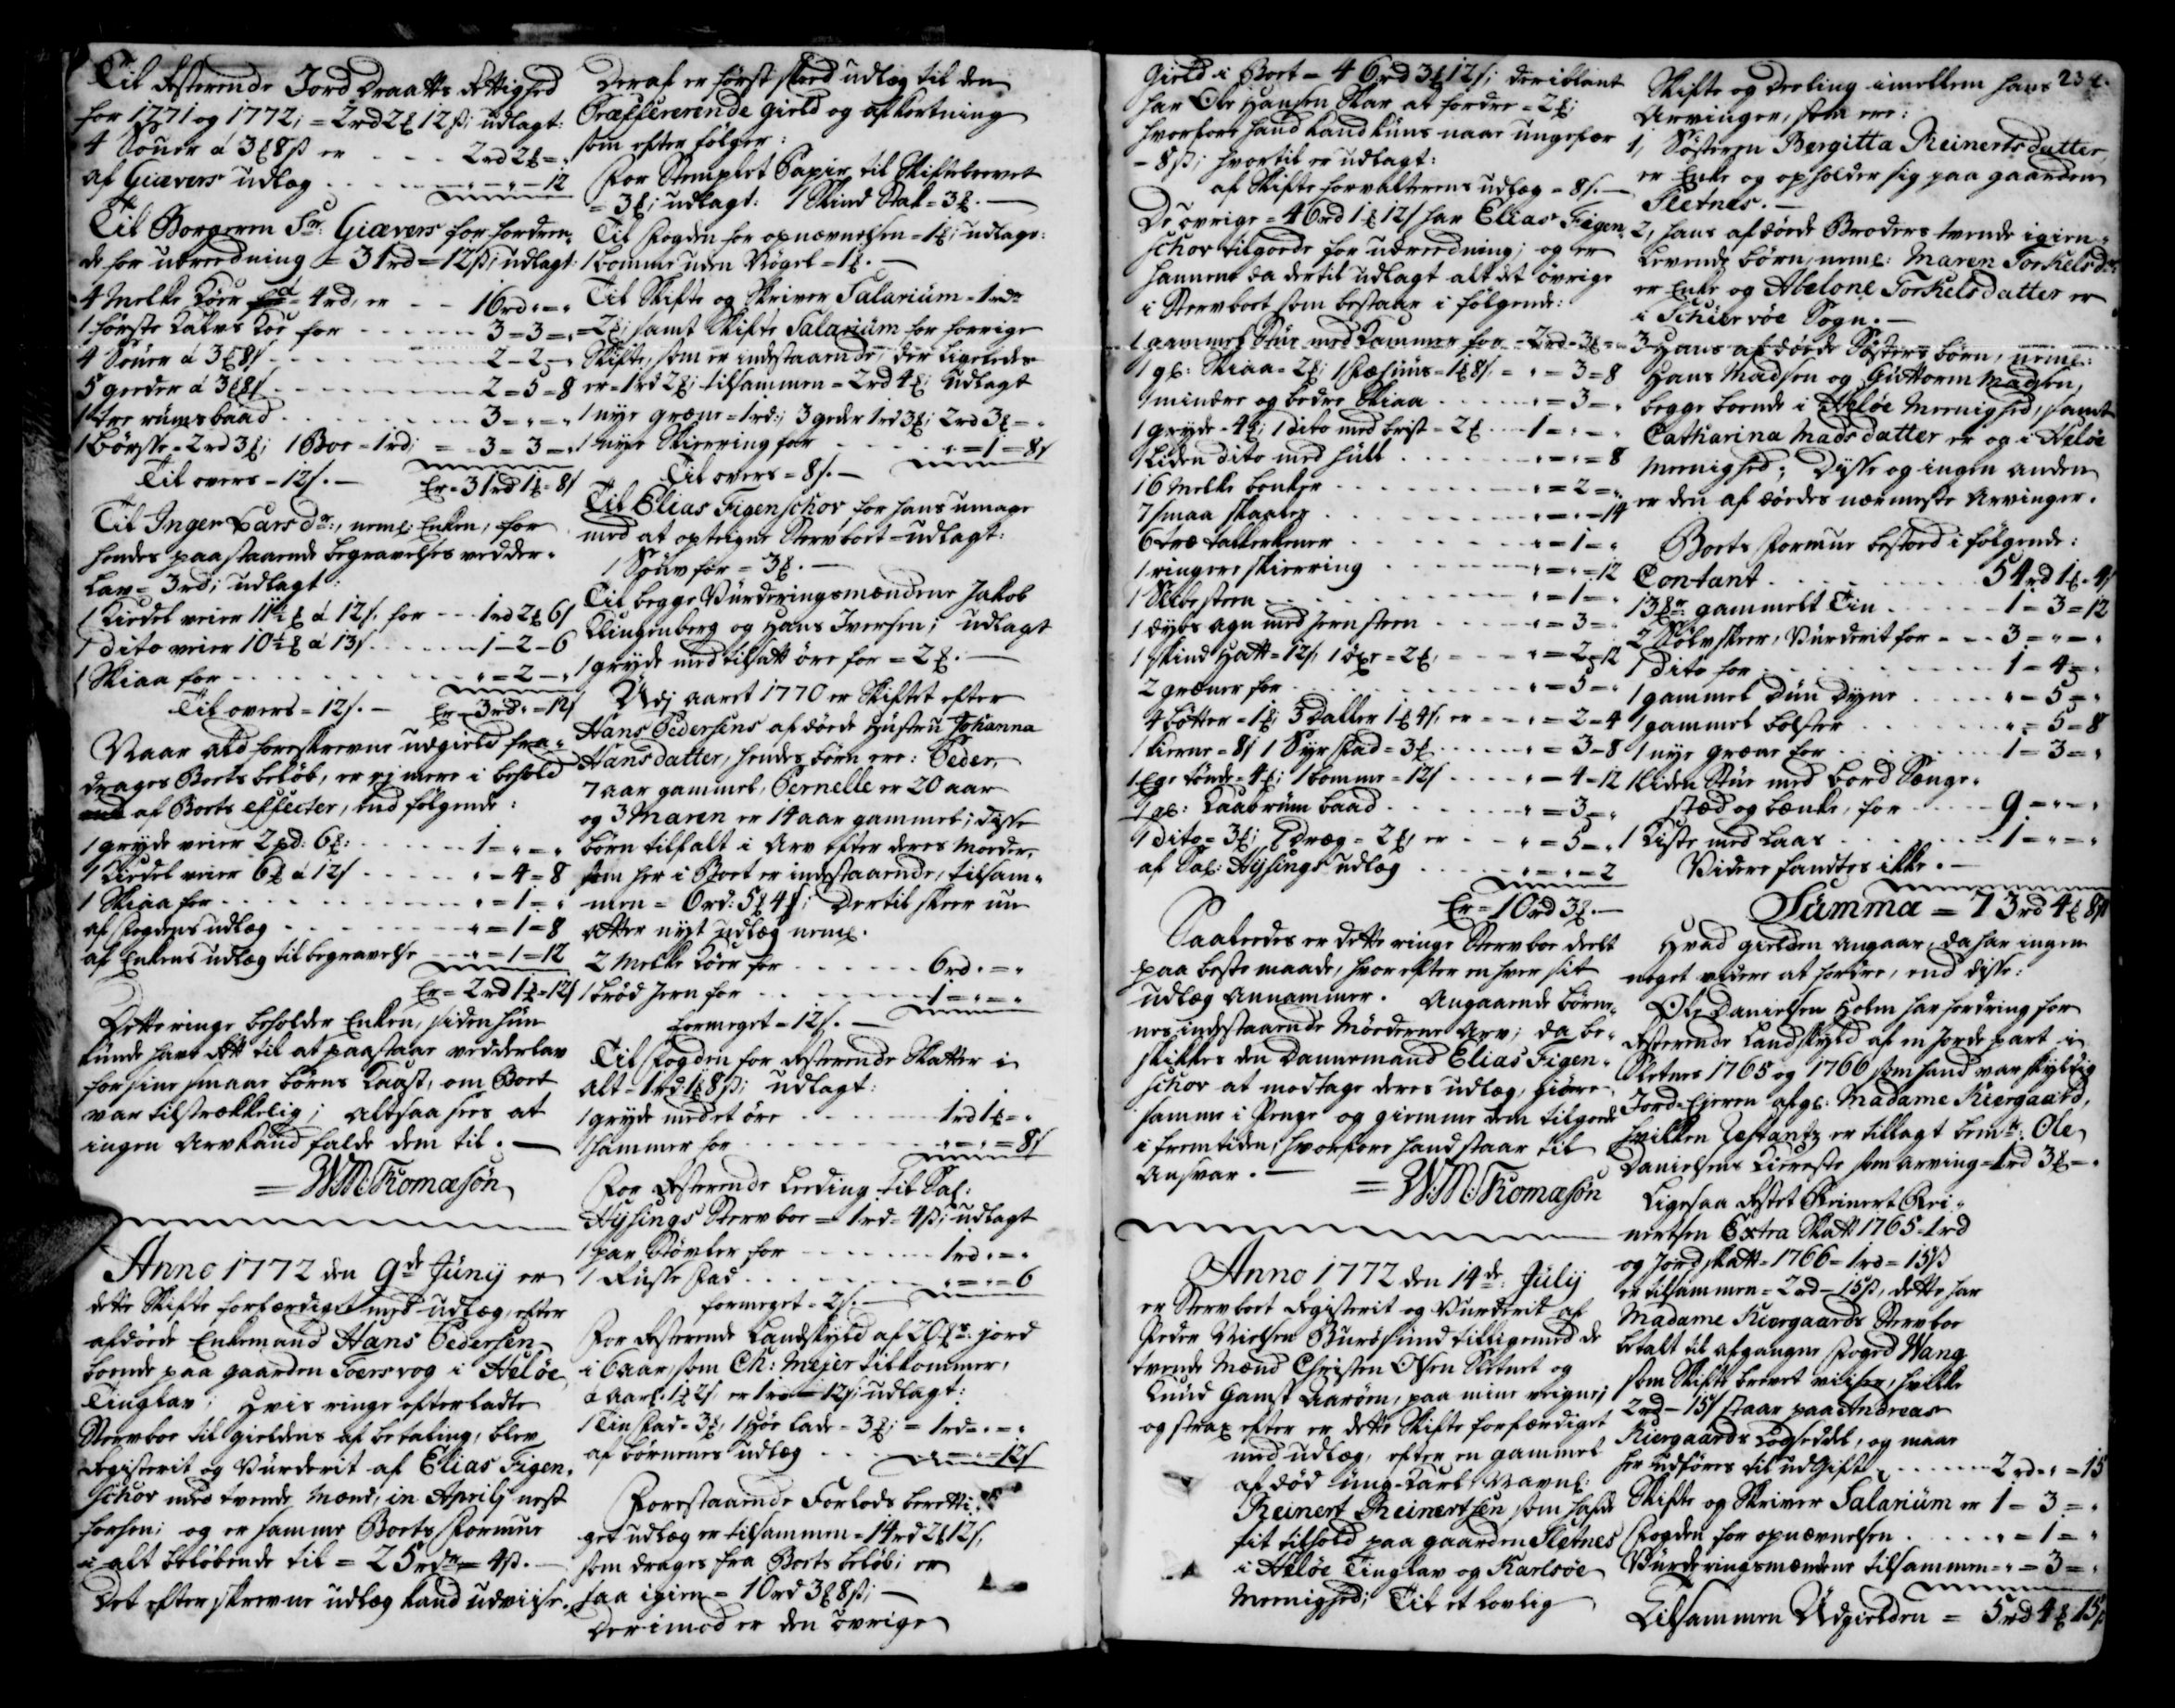 Til Resterende Jord Draatts Rettighed
for 1771 og 1772; = 2rd 2£ 12ß; udlagt:
4 Souer á 3£ 8ß er - - - 2rd 2£ = "
af Giævers udlæg - - - - " = " = 12
Til Borgeren Sr: Giævers for fordren¬
de for udreedning = 31rd = 12ß; udlagt:
4 Melke Køer á 4rd, er - - 16rd " = "
1 første Kalvs Koe for - - - - 3 = 3 = "
4 Souer á 3£ 8ß - - - - 2 = 2 = "
5 geeder á 3£ 8ß - - - - 2 = 5 = 8
1 tre rums baad - - - - 3 = " = "
1 Børsse = 2rd 3£; 1 Boe = 1rd; = 3 = 3 = "
Til overs = 12ß. — Er = 31rd 1£ = 8ß
Til Inger Lars dr:, neml: Enken, for
hendes paastaaende begravelses vedder¬
lav = 3rd; udlagt:
1 Kiedel veier 11½ £ á 12ß. for - - 1rd 2£ 6ß
1 dito veier 10½ £ á 13ß - - - - 1 - 2 - 6
1 Skiaa for - - - - " = 2 = "
Til overs = 12ß. — Er = 3rd " = 12ß
Naar alt foreskrevne udgield fra¬
drages Boets beløb, er ej mere i behold
af Boets effecter, end følgende:
1 gryde veier 2 pd: 6£: - - - - 1 = " = "
1 Kiedel veier 6£ á 12ß - - - - " = 4 = 8
1 Skiaa for - - - - " = 1 = "
af Fogdens udlæg - - - - " = 1 = 8
af Enkens udlæg til begravelse - - " = 1 = 12
Er = 2rd 1£ = 12ß
Dette ringe beholder Enken, siden hun
kunde have Ret til at paastaae vedderlav
for sine smaae børns Kaast, om Boet
var tilstrækkelig; altsaa sees at
ingen Arv kand falde dem til. —
= WM: Thomæsön
Anno 1772 den 9de Junij er
dette Skifte forfærdiget med udlæg, efter
afdøede Enkemand Hans Pedersen
boende paa gaarden Toersvog i Helöe
Tinglav; Hvis ringe efterladte
Stervboe til gieldens afbetaling, blev
Registerit og Vurderit af Elias Figen¬
schov med tvende Mænd, in Aprilj nest
forhen; og er samme Boets Formue
i alt beløbende til = 25 rdr = 4ß. —
Det efterskrevne udlæg kand udviise.
Deraf er først skeed udlæg til den
Præfferende gield og afkortning
som efter følger:
For Stemplet Papir til Skiftebrevet
= 3£; udlagt: 1 Skind Stak = 3£. —
Til Fogden for opnævnelsen = 1£; udlagt:
1 Komme uden Nögel = 1£. —
Til Skifte og Skriver Salarium = 1rdr
= 2£; samt Skifte Salarium for forrige
Skifte, som er indestaaende, der ligeledes
er = 1rd 2£; tilsammen = 2rd 4£; udlagt
1 nye græne = 1rd:; 3 geder 1rd 3£; 2rd 3£ = "
1 nye Skierring for - - - - " = 1 = 8ß
Til overs = 8ß. —
Til Elias Figenschov, for hans umage
med at opteigne Stervboet = udlagt:
1 Souv for = 3£. —
Til begge Vurderingsmændene Jakob
Klingenberg og Hans Iversen; udlagt
1 gryde med tilsatt öre for = 2£. —
Udj aaret 1770 er Skiftet efter
Hans Pedersens afdøede Hustru Johanna
Hansdatter, hendes børn ere: Peder
7 aar gammel, Pernelle er 20 aar
og 3 Maren er 14 aar gammel; disse
børn tilfalt i Arv efter deres Moeder,
som her i Boet er indestaaende, tilsam¬
men = 6rd: 5£ 4ß; Dertil skeer nu
atter nyt udlæg neml.
2 Melke Køer for - - - - 6rd " = "
1 brød Jern for - - - - 1 = " = "
formeget = 12ß. —
Til Fogden for Resterende Skatter i
alt = 1rd 1£ 8ß; udlagt:
1 gryde med et öre - - - - 1rd 1£ = "
1 hammer for - - - - " = " = 8ß
For Resterende Leeding til Sal:
Hysings Stervboe = 1rd = 4ß; udlagt
1 par Støvler for - - - - 1rd " = "
1 Russe Fad - - - - " = " = 6
formeget = 2ß. —
For Resterende Landskyld af 20£r: jord
i 6 aar, som Ch: Mejer tilkommer,
á aarl: 1£ 2ß, er 1rd = 12ß; udlagt:
1 Tin Fad = 3£, 1 Høe lade = 3£; = 1rd = " = "
af børnenes udlæg - - - - " = " = 12ß
Forestaaende Forlods beretti¬
get udlæg er tilsammen = 14rd 2£ 12ß,
som drages fra Boets beløb; er
saa igien = 10rd 3£ 8ß; —
Derimod er den övrige
234.
Gield i Boet = 46rd 3£ 12ß; deriblant
har Ole Hansen Skar at fordre = 2£;
hvorfore hand kand kuns naae ungefær
= 8ß; hvortil er udlagt:
af Skifteforvalterens udlæg = 8ß. —
De övrige = 46rd 1£ 12ß har Elias Figen¬
schov tilgoede for udreedning; og er
hannem da dertil udlagt alt det övrige
i Stervboet som bestaaer i følgende:
1 gammel Stue med Kammer for = 2rd = 3£ = "
1 gl: Skiaa = 2£; 1 Fæhuus = 1£ 8ß, = " = 3 = 8
1 mindre og bedre Skiaa - - - - " = 3 = "
1 gryde = 4£; 1 dito med brist = 2£ - - 1 = " = "
1 liden dito med hull - - - - " = " = 8
16 Melke bonker - - - - " = 2 = "
7 smaa skaaler - - - - " = " = 14
6 træ tallerkener - - - - " = 1 = "
1 ringere skierring - - - - " = " = 12
1 Slibesteen - - - - " = 1 = "
1 dybs agn med Jernsteen - - - - " = 3 = "
1 skind Hatt = 12ß, 1 öxe = 2£, - - " = 2 = 12
2 græner for - - - - " = 5 = "
4 bötter = 1£; 3 Daller 1£ 4ß, er - - " = 2 = 4
1 kierne = 8ß 1 Syre fad = 3£ - - - - " = 3 = 8
1 Ege tønde = 4£; 1 bomme = 12ß - - - - " = 4 = 12
1 gl: Kaabrum baad - - - - " = 3 = "
1 dito = 3£; 1 dræg = 2£, er - - " = 5 = "
af Sal: Hysings udlæg - - - - " = " = 2
Er = 10rd 3£. —
Saaledes er dette ringe Stervboe deelt
paa beste maade, hvorefter enhver sit
udlæg annammer. Angaaende børne¬
nes indestaaende Möderne Arv; da be¬
skikkes den Dannemand Elias Figen¬
schov at modtage deres udlæg, giøre
samme i Penge og giemme dem tilgoede
i fremtiden, hvorfore hand staar til
Ansvar. —
= W:M: Thomæsön
Anno 1772 den 14de Julij
er Stervboet Registerit og Vurderit af
Peder Nielsen Burösund tilligemed de
tvende Mænd Christen Olsen Sletnes og
Knud Gamst Aaröen, paa mine veigne;
og strax efter er dette Skifte forfærdiget
med udlæg, efter en gammel
afdød ung-Karl Navnl:
Reinert Reinertsen som hafde
sit tilhold paa gaarden Sletnes
i Helöe Tinglav og Karlsöe
Meenighed; Til et lovlig
Skifte og deeling imellem hans
Arvinger, som ere:
1, Søsteren Bergitta Reinertsdatter,
er Enke og opholder sig paa gaarden
Sletnes. —
2, hans afdøede Broders tvende igien¬
levende børn, neml: Maren Torkelsdr:
er Enke og Abelone Torkelsdatter er
i Schiervöe Sogn. —
3 Hans afdøede Søsters børn, neml:
Hans Madsen og Guttorm Madsen,
begge boende i Helöe Meenighed, samt
Catharina Madsdatter er og i Helöe
Meenighed; Disse og ingen anden
er den afdøedes nærmeste Arvinger.
Boets Formue bestoed i følgende:
Contant - - - - 54rd 1£ = 4ß
13£r: gammelt Tin - - - - 1 = 3 = 12
2 Sølv skeer, Vurderit for - - - 3 = " = "
1 dito for - - - - 1 = 4 = "
1 gammel Dun Dyne - - - - " = 5 = "
1 gammel bolster - - - - " = 5 = 8
1 nye græne for - - - - 1 = 3 = "
1 liden Stue med bord Senge¬
stæd og bænke, for - - - - 9 = " = "
1 Kiste med Laas - - - - 1 = " = "
Videre fandtes ikke. —
Summa = 73rd 4£ 8ß
Hvad gielden angaar, da har ingen
noget videre at fordre, end disse:
Ole Danielsen Holm har fordring for
Resterende Landskyld af en Jorde part i
Sletnes 1765 og 1766 som hand var skyldig
Jord-Ejeren afgl: Madame Kiergaard,
hvilken Restantz er tillagt bemr: Ole
Danielsens Kiereste som arving = 1rd 3£ = "
Ligesaa Restet Reinert Rei¬
nertsen Extra Skatt 1765 = 1rd
og Jordskatt = 1766 = 1rd = 15ß
er tilsammen = 2rd = 15ß, dette har
Madame Kiergaards Stervboe
betalt til afgangne Foged Wang
som Skifte brevet viiser, hvilke
2rd = 15ß staar paa Andreas
Kiergaards Lodseddel, og maae
her udføres til udGift - - - - 2rd " = 15
Skifte og Skriver Salarium er 1 = 3 = "
Fogden for opnævnelsen - - - - " = 1 = "
Vurderingsmændene tilsammen = " = 3 = "
Tilsammen Udgielden = 5rd 4£ 15ß